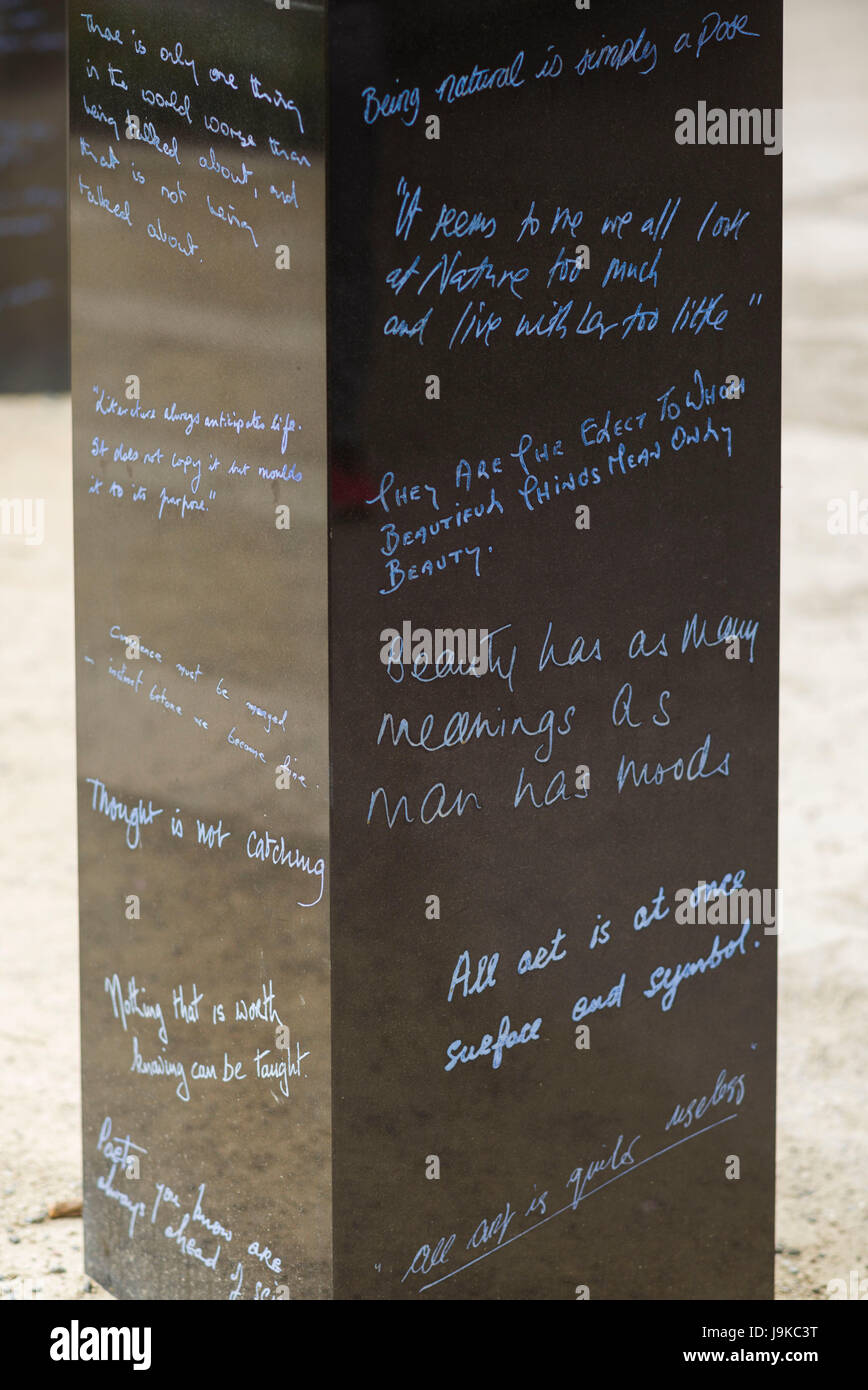 There is only one thing
in the world worse than
being talked about, and
that is not being
talked about.
"Literature always anticipates life.
It does not copy it but moulds
it to its purpose."
must be merged
in instinct before we become fine.
Thought is not catching
Nothing that is worth
knowing can be taught.
Poets, you know are
always ahead of sci
Being natural is simply a pose
"It seems to me we all look
at Nature too much
and live with her too little"
THEY ARE THE ELECT TO WHOM
BEAUTIFUL THINGS MEAN ONLY
BEAUTY.
Beauty has as many
meanings as
man has moods
All art is at once
surface and symbol.
"All art is quite useless"
alamy stock photo
J9KC3T
www.alamy.com